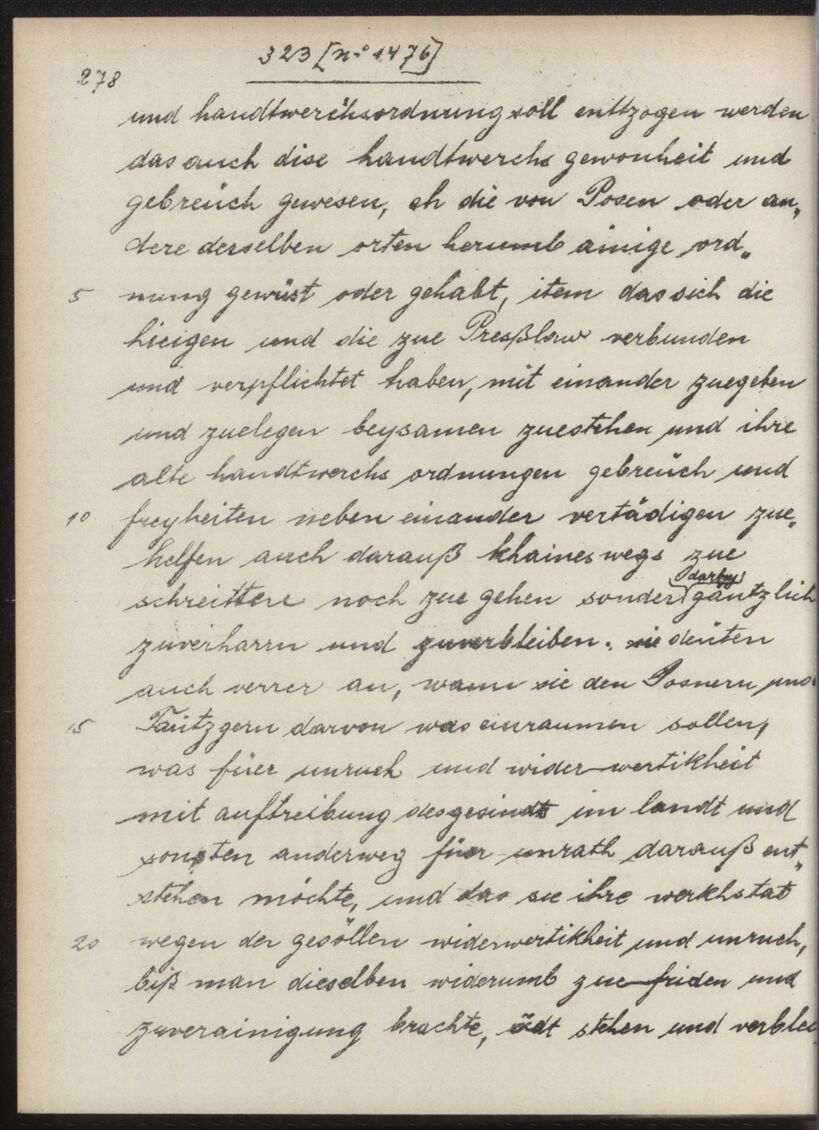 323 [nº 1476]
278
und handtwerchsordnung soll enttzogen werden
das auch dise handtwerchs gewonheit und
gebreüch gewesen, eh die von Posen oder an„
dere derselben orten herumb ainige ord„
5 nung gewüst oder gehabt, item das sich die
hieigen und die zue Presßlaw verbunden
und verpflichtet haben, mit einander zuegeben
und zuelegen beysamen zuestehen und ihre
alte handtwerchs ordnungen gebreüch und
10 freyheiten neben einander vertädigen zue„
helfen auch darauß khaineswegs zue
schreitten noch zue gehen sonder darby gäntzlich
zuverharrn und zuverbleiben. sie deüten
auch verrer an, wann sie den Posnern und
15 Tantzgern darvon was einraumen sollen,
was füer unrueh und wider wertikheit
mit auftreibung des gesindts im landt und
sonsten anderweg füer unrath darauß ent„
stehen möchte, und das sie ihre werkhstat
20 wegen der gesöllen widerwertikheit und unrueh,
biß man dieselben widerumb zue friden und
zuverainigung brachte, ödt stehen und verblei